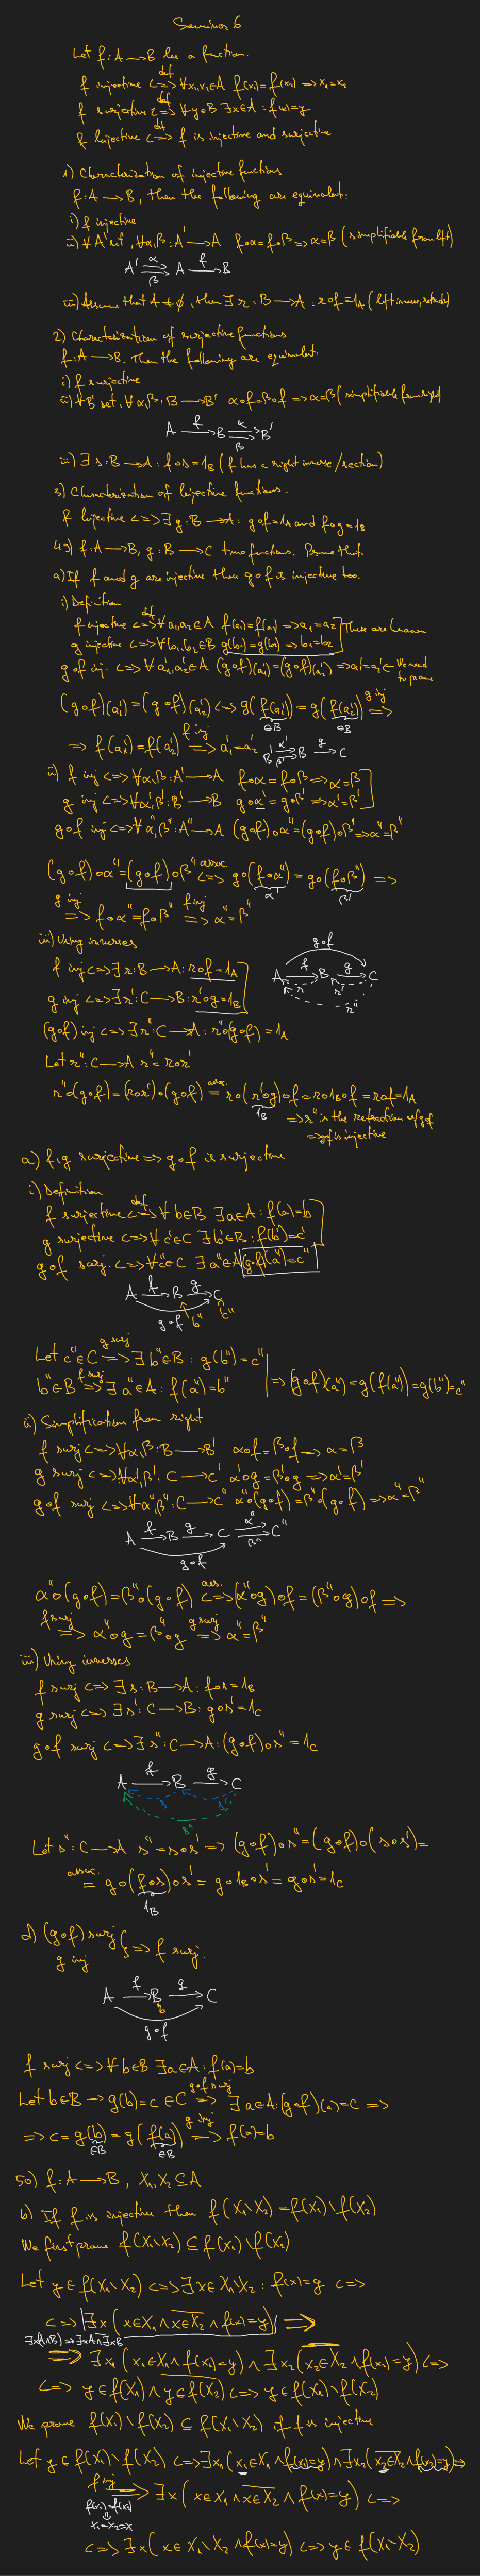 Seminar 6
Let f: A → B be a function.
f injective <=>def ∀x₁,x₂∈A f(x₁)=f(x₂) => x₁=x₂
f surjective <=>def ∀y∈B ∃x∈A : f(x)=y
f bijective <=>def f is injective and surjective
1) Characterization of injective functions
f: A → B, then the following are equivalent:
i) f injective
ii) ∀A' set, ∀α,β : A' → A f∘α = f∘β => α=β (simplifiable from left)
A' ⇉ A → B
α β f
iii) Assume that A ≠ ∅, then ∃ r : B → A : r∘f = 1_A (left inverse, retract)
2) Characterization of surjective functions
f: A → B. Then the following are equivalent:
i) f surjective
ii) ∀B' set, ∀α,β : B → B' α∘f = β∘f => α=β (simplifiable from right)
A → B ⇉ B'
f α β
iii) ∃ s : B → A : f∘s = 1_B (f has a right inverse/section)
3) Characterization of bijective functions.
f bijective <=> ∃ g : B → A : g∘f = 1_A and f∘g = 1_B
49) f: A → B, g: B → C two functions. Prove that:
a) If f and g are injective then g∘f is injective too.
i) Definition
f injective <=>def ∀a₁,a₂∈A f(a₁)=f(a₂) => a₁=a₂
g injective <=> ∀b₁,b₂∈B g(b₁)=g(b₂) => b₁=b₂
These are known
g∘f inj. <=> ∀a₁',a₂'∈A (g∘f)(a₁')=(g∘f)(a₂') => a₁'=a₂' <- We need to prove
(g∘f)(a₁')=(g∘f)(a₂') <=> g(f(a₁')) = g(f(a₂')) =>g inj
∈B ∈B
=> f(a₁')=f(a₂') =>f inj a₁'=a₂'
B' ⇉ B → C
α' β' g
ii) f inj <=> ∀α,β: A' → A f∘α = f∘β => α=β
g inj <=> ∀α',β': B' → B g∘α' = g∘β' => α'=β'
g∘f inj <=> ∀α'',β'': A'' → A (g∘f)∘α'' = (g∘f)∘β'' => α''=β''
(g∘f)∘α'' = (g∘f)∘β'' <=>assoc. g∘(f∘α'') = g∘(f∘β'') =>
α' β'
=>g inj f∘α'' = f∘β'' =>f inj α''=β''
iii) Using inverses
f inj <=> ∃ r: B → A: r∘f = 1_A
g inj <=> ∃ r': C → B: r'∘g = 1_B
g∘f
A → B → C
f g
r r' r''
(g∘f) inj <=> ∃ r'': C → A: r''∘(g∘f) = 1_A
Let r'': C → A r'' = r∘r'
r''∘(g∘f) = (r∘r')∘(g∘f) =assoc. r∘(r'∘g)∘f = r∘1_B∘f = r∘f = 1_A
1_B
=> r'' is the retraction of g∘f
=> g∘f is injective
a) f,g surjective => g∘f is surjective
i) Definition
f surjective <=>def ∀b∈B ∃a∈A : f(a)=b
g surjective <=> ∀c'∈C ∃b'∈B : f(b')=c'
g∘f surj. <=> ∀c''∈C ∃a''∈A (g∘f)(a'')=c''
A → B → C
f g
g∘f b'' c''
Let c''∈C =>g surj ∃b''∈B : g(b'')=c''
b''∈B =>f surj ∃a''∈A : f(a'')=b''
=> (g∘f)(a'')=g(f(a''))=g(b'')=c''
ii) Simplification from right
f surj <=> ∀α,β: B → B' α∘f = β∘f => α=β
g surj <=> ∀α',β': C → C' α'∘g = β'∘g => α'=β'
g∘f surj <=> ∀α'',β'': C → C'' α''∘(g∘f) = β''∘(g∘f) => α''=β''
A → B → C ⇉ C''
f g α'' β''
g∘f
α''∘(g∘f) = β''∘(g∘f) <=>ass. (α''∘g)∘f = (β''∘g)∘f =>
=>f surj α''∘g = β''∘g =>g surj α''=β''
iii) Using inverses
f surj <=> ∃ s: B → A: f∘s = 1_B
g surj <=> ∃ s': C → B: g∘s' = 1_C
g∘f surj <=> ∃ s'': C → A: (g∘f)∘s'' = 1_C
A → B → C
f g
s s'
s''
Let s'': C → A s'' = s∘s' => (g∘f)∘s'' = (g∘f)∘(s∘s') =
=assoc. g∘(f∘s)∘s' = g∘1_B∘s' = g∘s' = 1_C
1_B
d) (g∘f) surj
g inj
} => f surj.
A → B → C
f g
b
g∘f
f surj <=> ∀b∈B ∃a∈A : f(a)=b
Let b∈B => g(b)=c∈C =>g∘f surj ∃a∈A: (g∘f)(a)=c =>
=> c = g(b) = g(f(a)) =>g inj f(a)=b
∈B ∈B
50) f: A → B, X₁,X₂ ⊆ A
b) If f is injective then f(X₁\X₂) = f(X₁)\f(X₂)
We first prove f(X₁\X₂) ⊆ f(X₁)\f(X₂)
Let y∈f(X₁\X₂) <=> ∃x∈X₁\X₂ : f(x)=y <=>
<=> ∃x (x∈X₁ ∧ x∈X₂ ∧ f(x)=y) =>
∃x(A∧B) => ∃xA ∧ ∃xB
=> ∃x₁ (x₁∈X₁ ∧ f(x₁)=y) ∧ ∃x₂ (x₂∈X₂ ∧ f(x₂)=y) <=>
<=> y∈f(X₁) ∧ y∈f(X₂) <=> y∈f(X₁)\f(X₂)
We prove f(X₁)\f(X₂) ⊆ f(X₁\X₂) if f is injective
Let y∈f(X₁)\f(X₂) <=> ∃x₁ (x₁∈X₁ ∧ f(x₁)=y) ∧ ∃x₂ (x₂∈X₂ ∧ f(x₂)=y) =>
f inj => ∃x (x∈X₁ ∧ x∈X₂ ∧ f(x)=y) <=>
f(x₁)=f(x₂)
⇓
x₁=x₂=x
<=> ∃x (x∈X₁\X₂ ∧ f(x)=y) <=> y∈f(X₁\X₂)